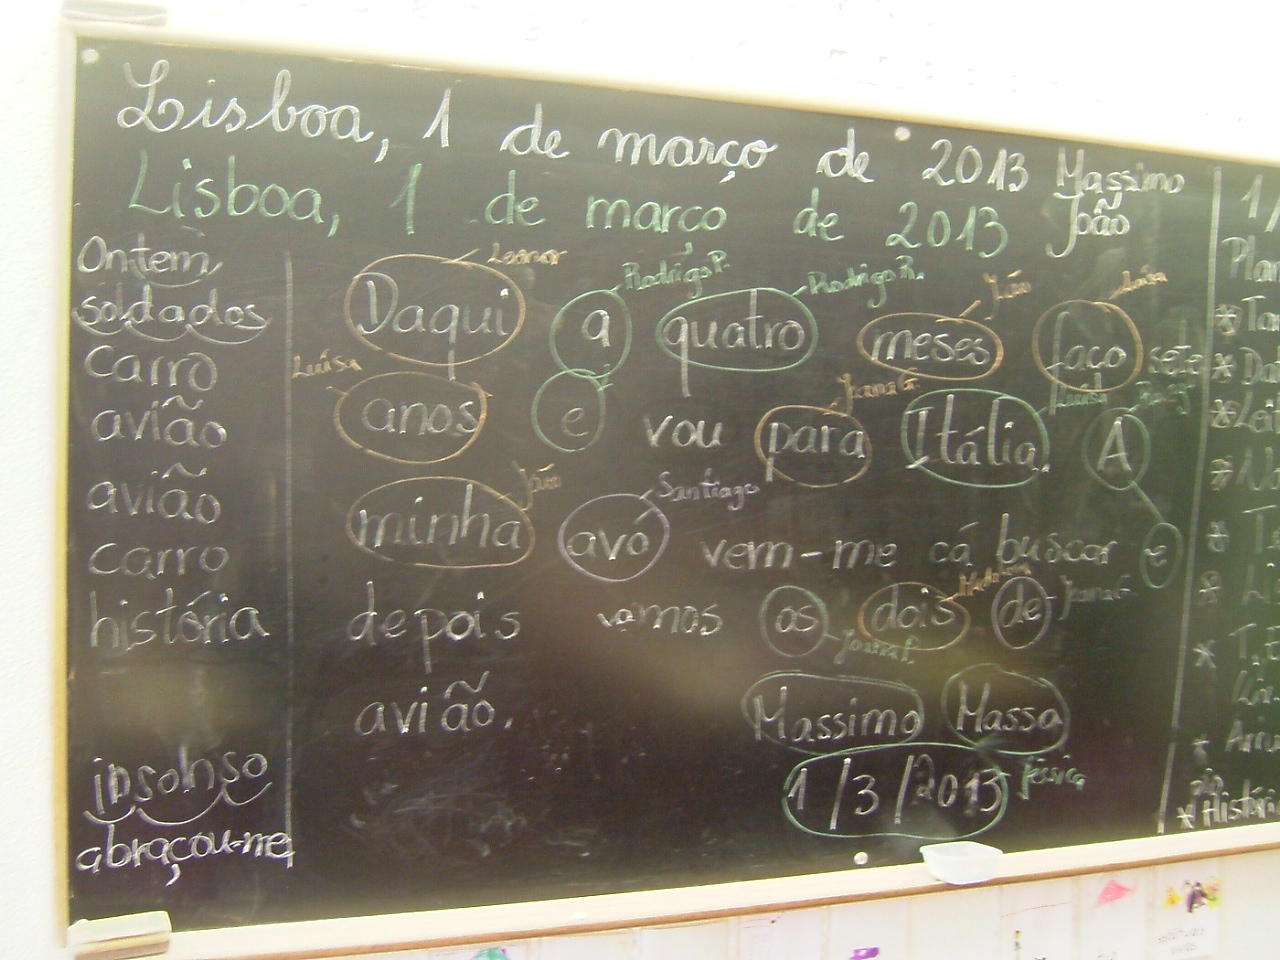 Lisboa, 1 de março de 2013 Massimo
Lisboa, 1 de março de 2013 João
Ontem
soldados
carro
avião
avião
carro
história
insonso
abraçou-me
Leonor Rodrigo P. Rodrigo R. João Luísa
Daqui a quatro meses faço sete
Luísa Joana G.
anos e vou para Itália. A
João Santiago
minha avó vem-me cá buscar e
depois vamos os dois de Joana G.
Joana P.
avião. Massimo Massa
1/3/2013 Jéssica
1/
Plan
* Ta
* Da
* Lei
* No
* Te
* Li
* T. E
Arru
* Históri